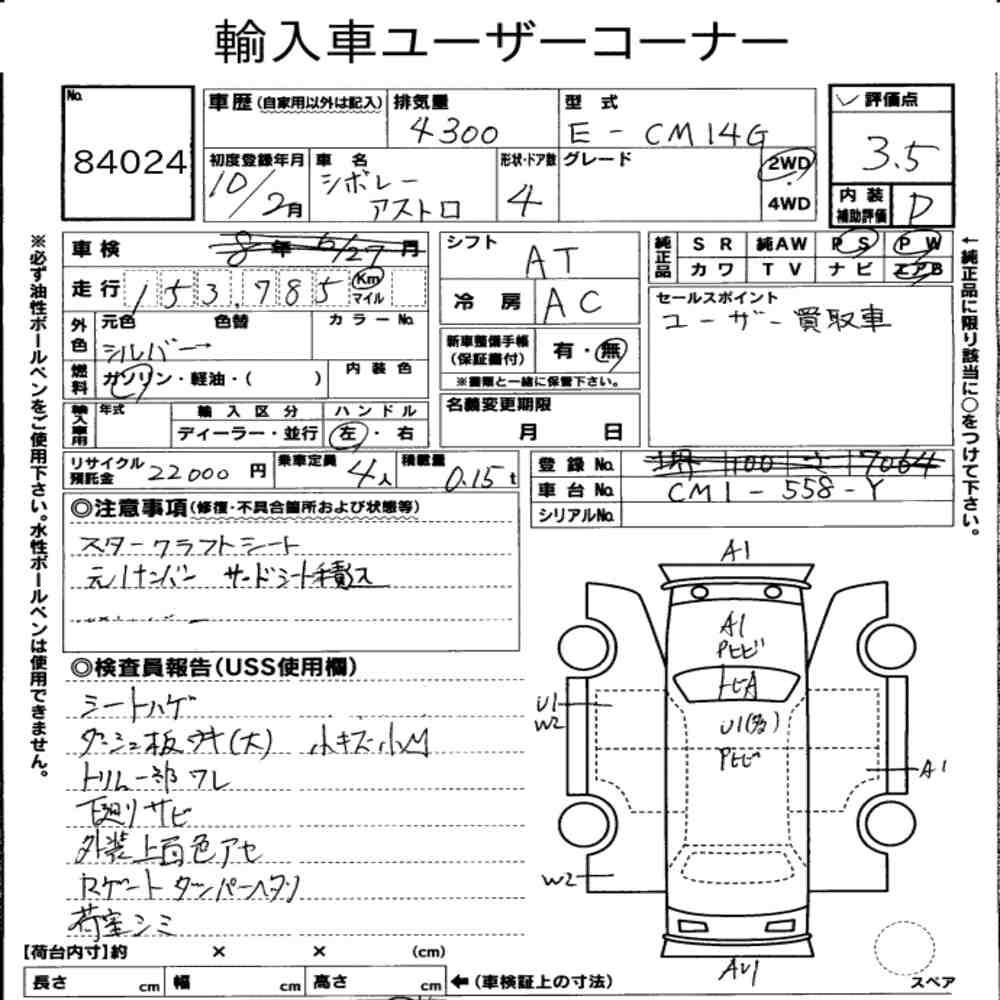 輸入車ユーザーコーナー
No. 84024
車歴(自家用以外は記入)
排気量 4300
型式 E - CM14G
評価点 3.5
初度登録年月 10/2月
車名 シボレー アストロ
形状・ドア数 4
グレード
2WD・4WD
内装補助評価 D
※必ず油性ボールペンをご使用下さい。水性ボールペンは使用できません。
車検 8年 6/27月
走行 153,785 Km マイル
外色 元色 シルバー 色替
カラーNo.
燃料 ガソリン・軽油・( )
内装色
輸入車用 年式
輸入区分 ディーラー・並行
ハンドル 左・右
シフト AT
冷房 AC
新車整備手帳(保証書付) 有・無
※書類と一緒に保管下さい。
名義変更期限 月 日
純正品 SR 純AW PS PW
カワ TV ナビ エアB
セールスポイント
ユーザー買取車
←純正品に限り該当に○をつけて下さい。
リサイクル預託金 22000円
乗車定員 4人
積載量 0.15t
登録No. 堺 100 さ 17064
車台No. CM1-558-Y
シリアルNo.
◎注意事項(修復・不具合箇所および状態等)
スタークラフトシート
元1ナンバー サードシート手積ス
◎検査員報告(USS使用欄)
シートハゲ
ダッシュ板ウキ(大) 小キズ小凹
トリム一部ワレ
下廻りサビ
外装上面色アセ
Rゲートダンパーヘタリ
荷室シミ
A1
A1
Pヒビ
トビA
U1(多)
Pヒビ
U1
W2
A1
W2
AU1
スペア
【荷台内寸】約 × × (cm)
長さ cm 幅 cm 高さ cm ←(車検証上の寸法)